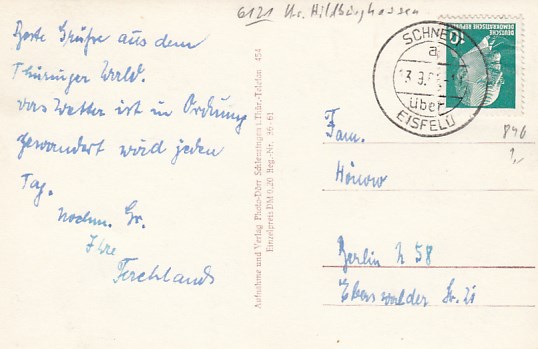 6121 Kr. Hildburghausen
Beste Grüße aus dem
Thüringer Wald.
Das Wetter ist in Ordnung
gewandert wird jeden
Tag.
Nochm. Gr.
Ihre
Ferchlands
Aufnahme und Verlag Photo-Dörr Schleusingen i. Thür. Telefon 454
Einzelpreis DM 0.20 Reg.-Nr. 36-61
SCHNETT
a
13.9.
über
EISFELD
DEUTSCHE
DEMOKRATISCHE REPUBLIK
10
846
1,-
Fam.
Hönow
Berlin N 58
Eberswalder Str. 21